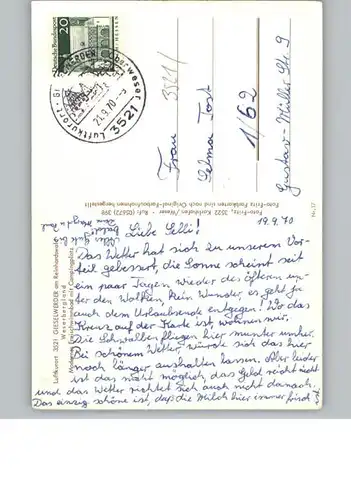 19.9.70
Liebe Selli!
Das Wetter hat sich zu unserem Vor-
teil gebessert, die Sonne scheint seit
ein paar Tagen wieder des öfteren un-
ter den Wolken, kein Wunder, es geht ja
auch dem Urlaubsende entgegen! Wo das
Kreuz auf der Karte ist wohnen wir.
Die Schwalben fliegen hier munter umher.
Bei schönem Wetter, würde sich das hier
noch länger aushalten lassen. Aber leider
ist das nicht möglich, das Geld reicht nicht
und das Wetter richtet sich auch nicht danach.
Das einzig schöne ist, daß die Milch hier immer frisch ist
Alles Gute
Frau
Selma Tost
1/62
Gustav-Müller Str. 9
3521
Deutsche Bundespost
20
HESSEN
Luftkurort
Oberweser
21.9.70
3521
Luftkurort 3521 GIESELWERDER am Reinhardswald
Weserbergland
Märchenlandschaft am Weserstrand mit Campingplatz
Foto-Fritz, 3522 Karlshafen/Weser · Ruf: (05672) 398
Foto-Fritz Farbkarten sind nach Original-Farbaufnahmen hergestellt!